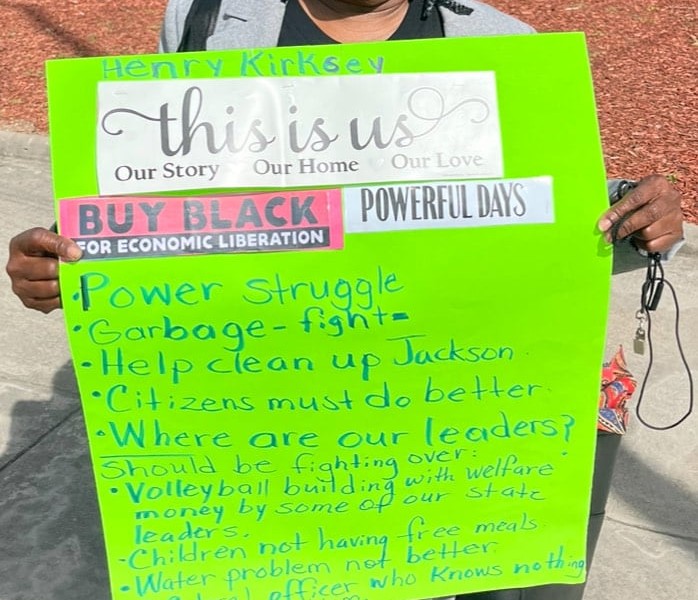 Henry Kirksey
this is us
Our Story Our Home Our Love
BUY BLACK
FOR ECONOMIC LIBERATION
POWERFUL DAYS
• Power struggle
• Garbage - fight =
• Help clean up Jackson.
• Citizens must do better.
• Where are our leaders?
Should be fighting over:
• Volleyball building with welfare
money by some of our state
leaders.
- Children not having free meals.
• Water problem not better.
officer who knows nothing